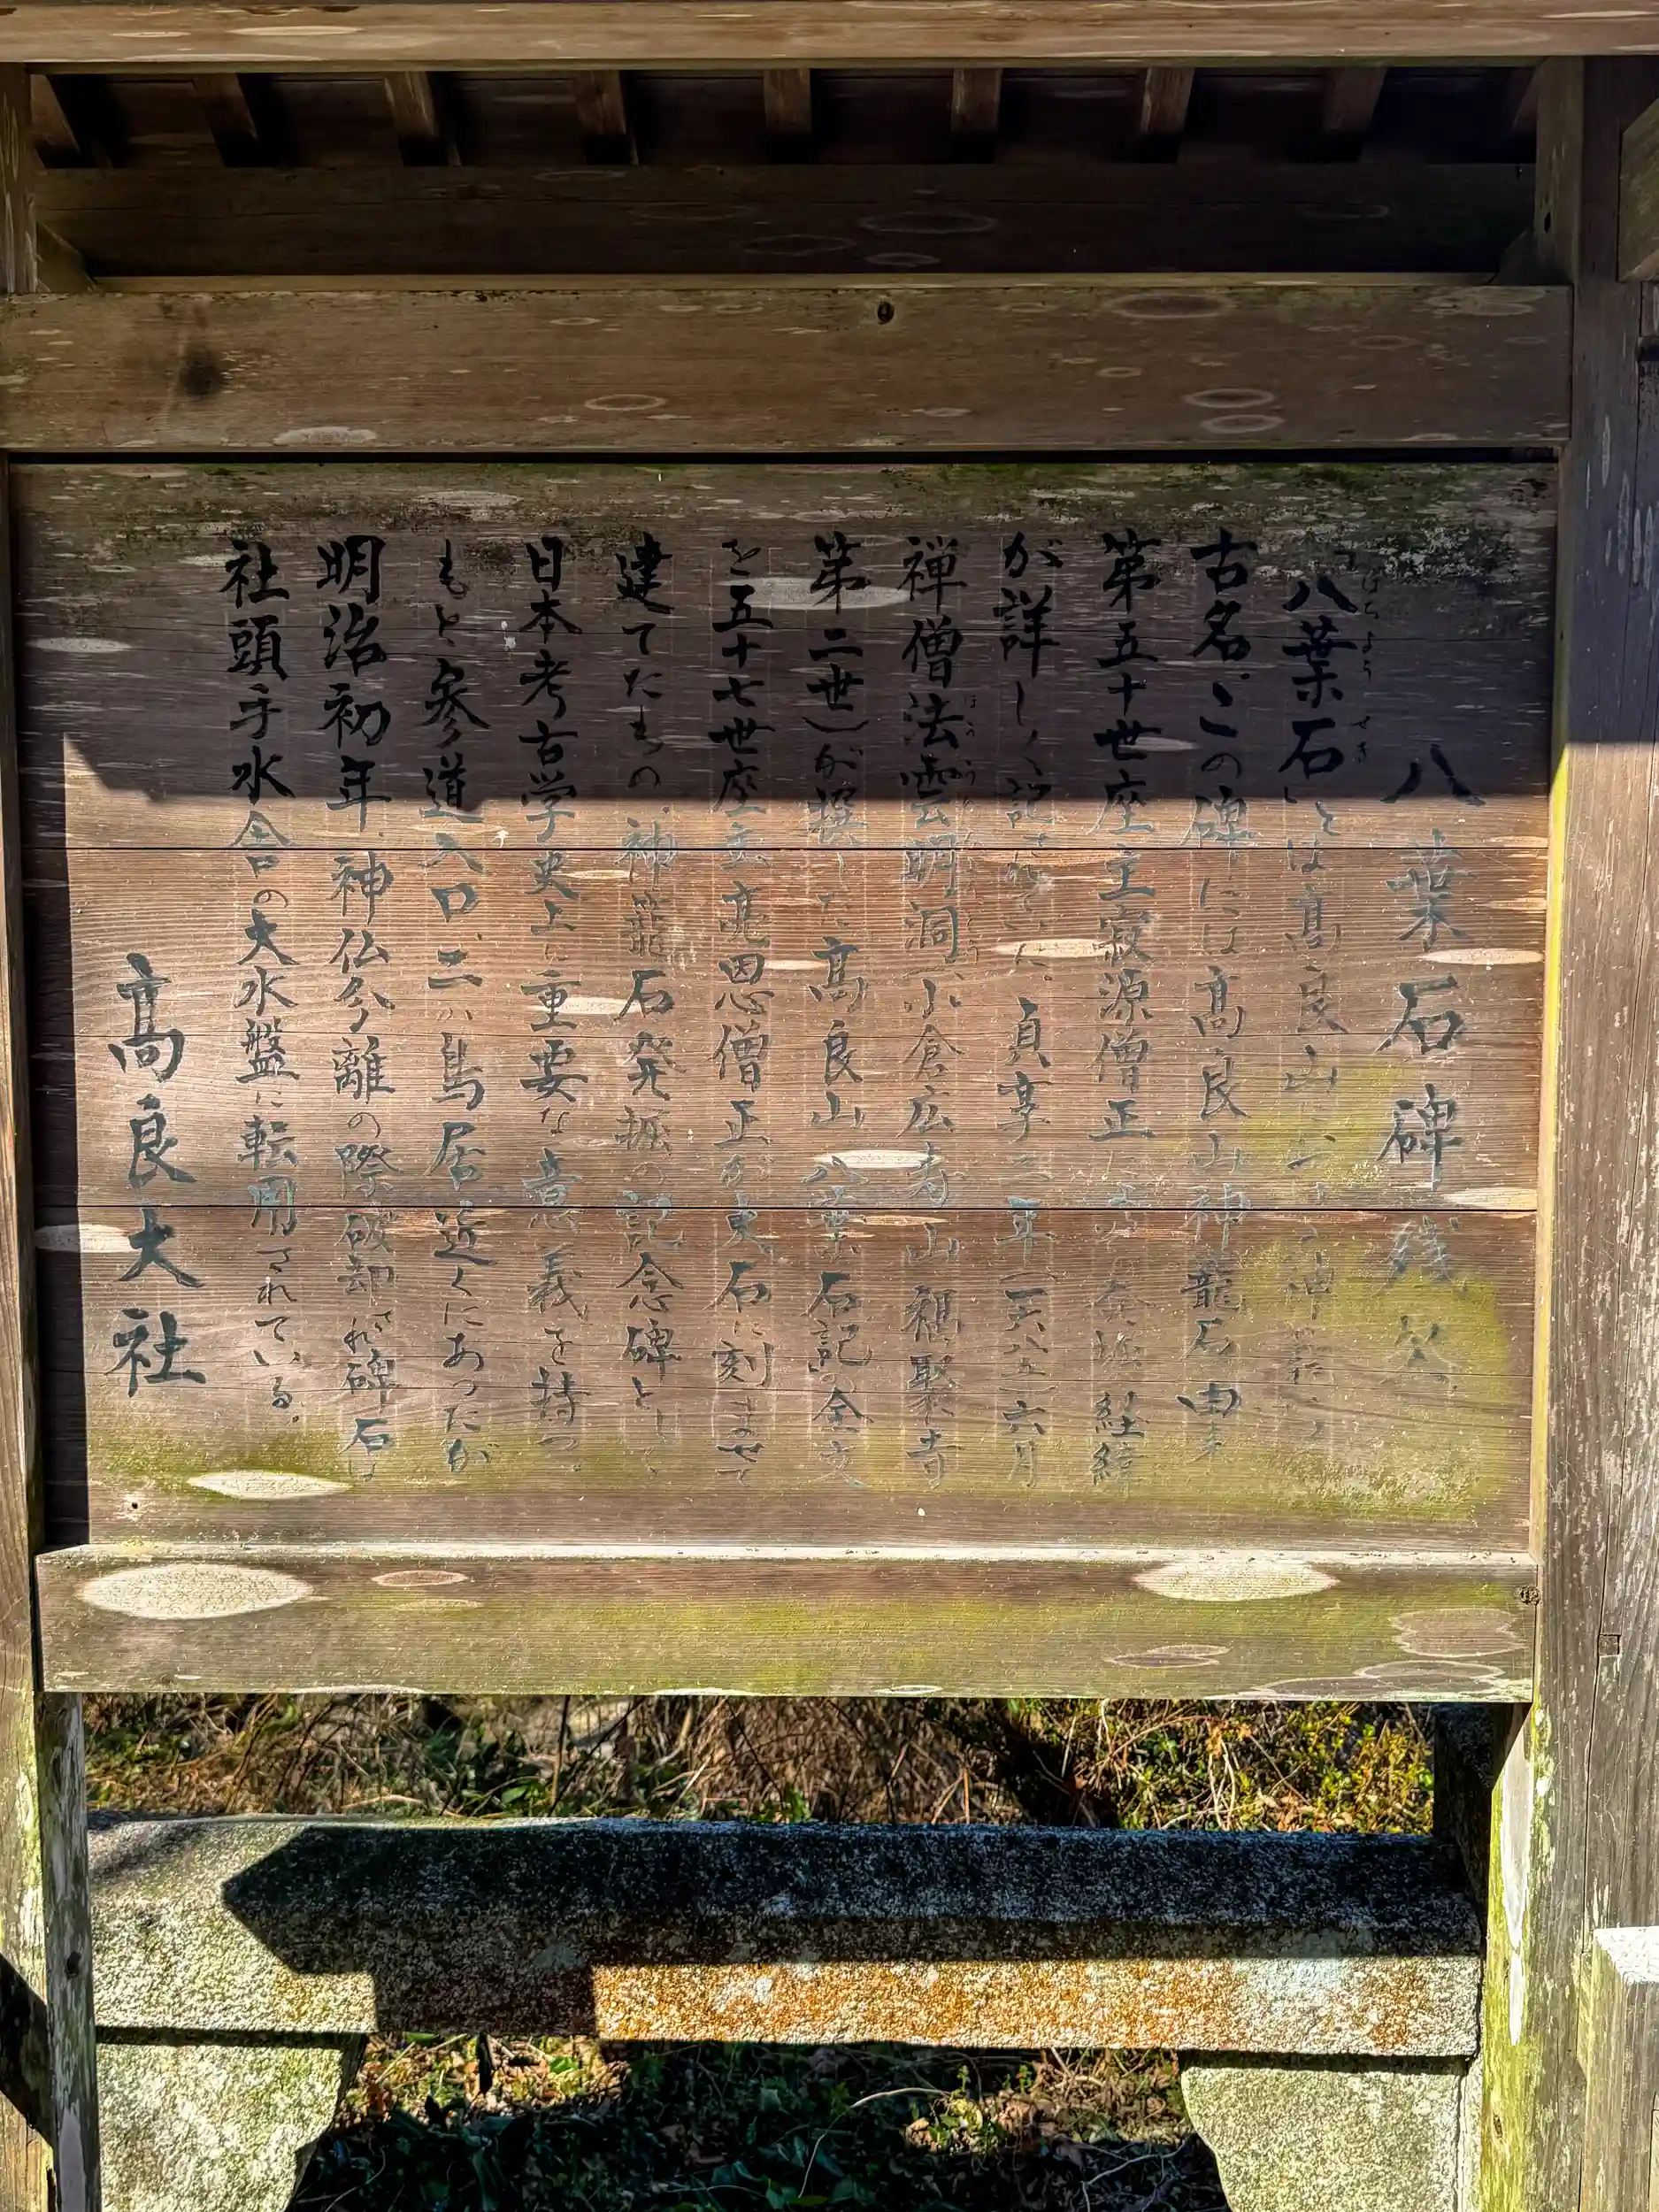 八葉石碑残欠
「八葉石」とは高良山にある神籠石の
古名。この碑には高良山神籠石由来
第五十世座主寂源僧正による発掘経緯
が詳しく記されていた。貞享二年(一六八五)六月
禅僧法雲明洞(小倉広寿山福聚寺
第二世)が撰した「高良山八葉石記」の全文
を五十七世座主亮恩僧正が東石に刻ませて
建てたもの。神籠石発掘の記念碑として、
日本考古学史上に重要な意義を持つ。
もと参道入口、二の鳥居近くにあったが
明治初年、神仏分離の際破却され碑石は
社頭手水舎の大水盤に転用されている。
高良大社